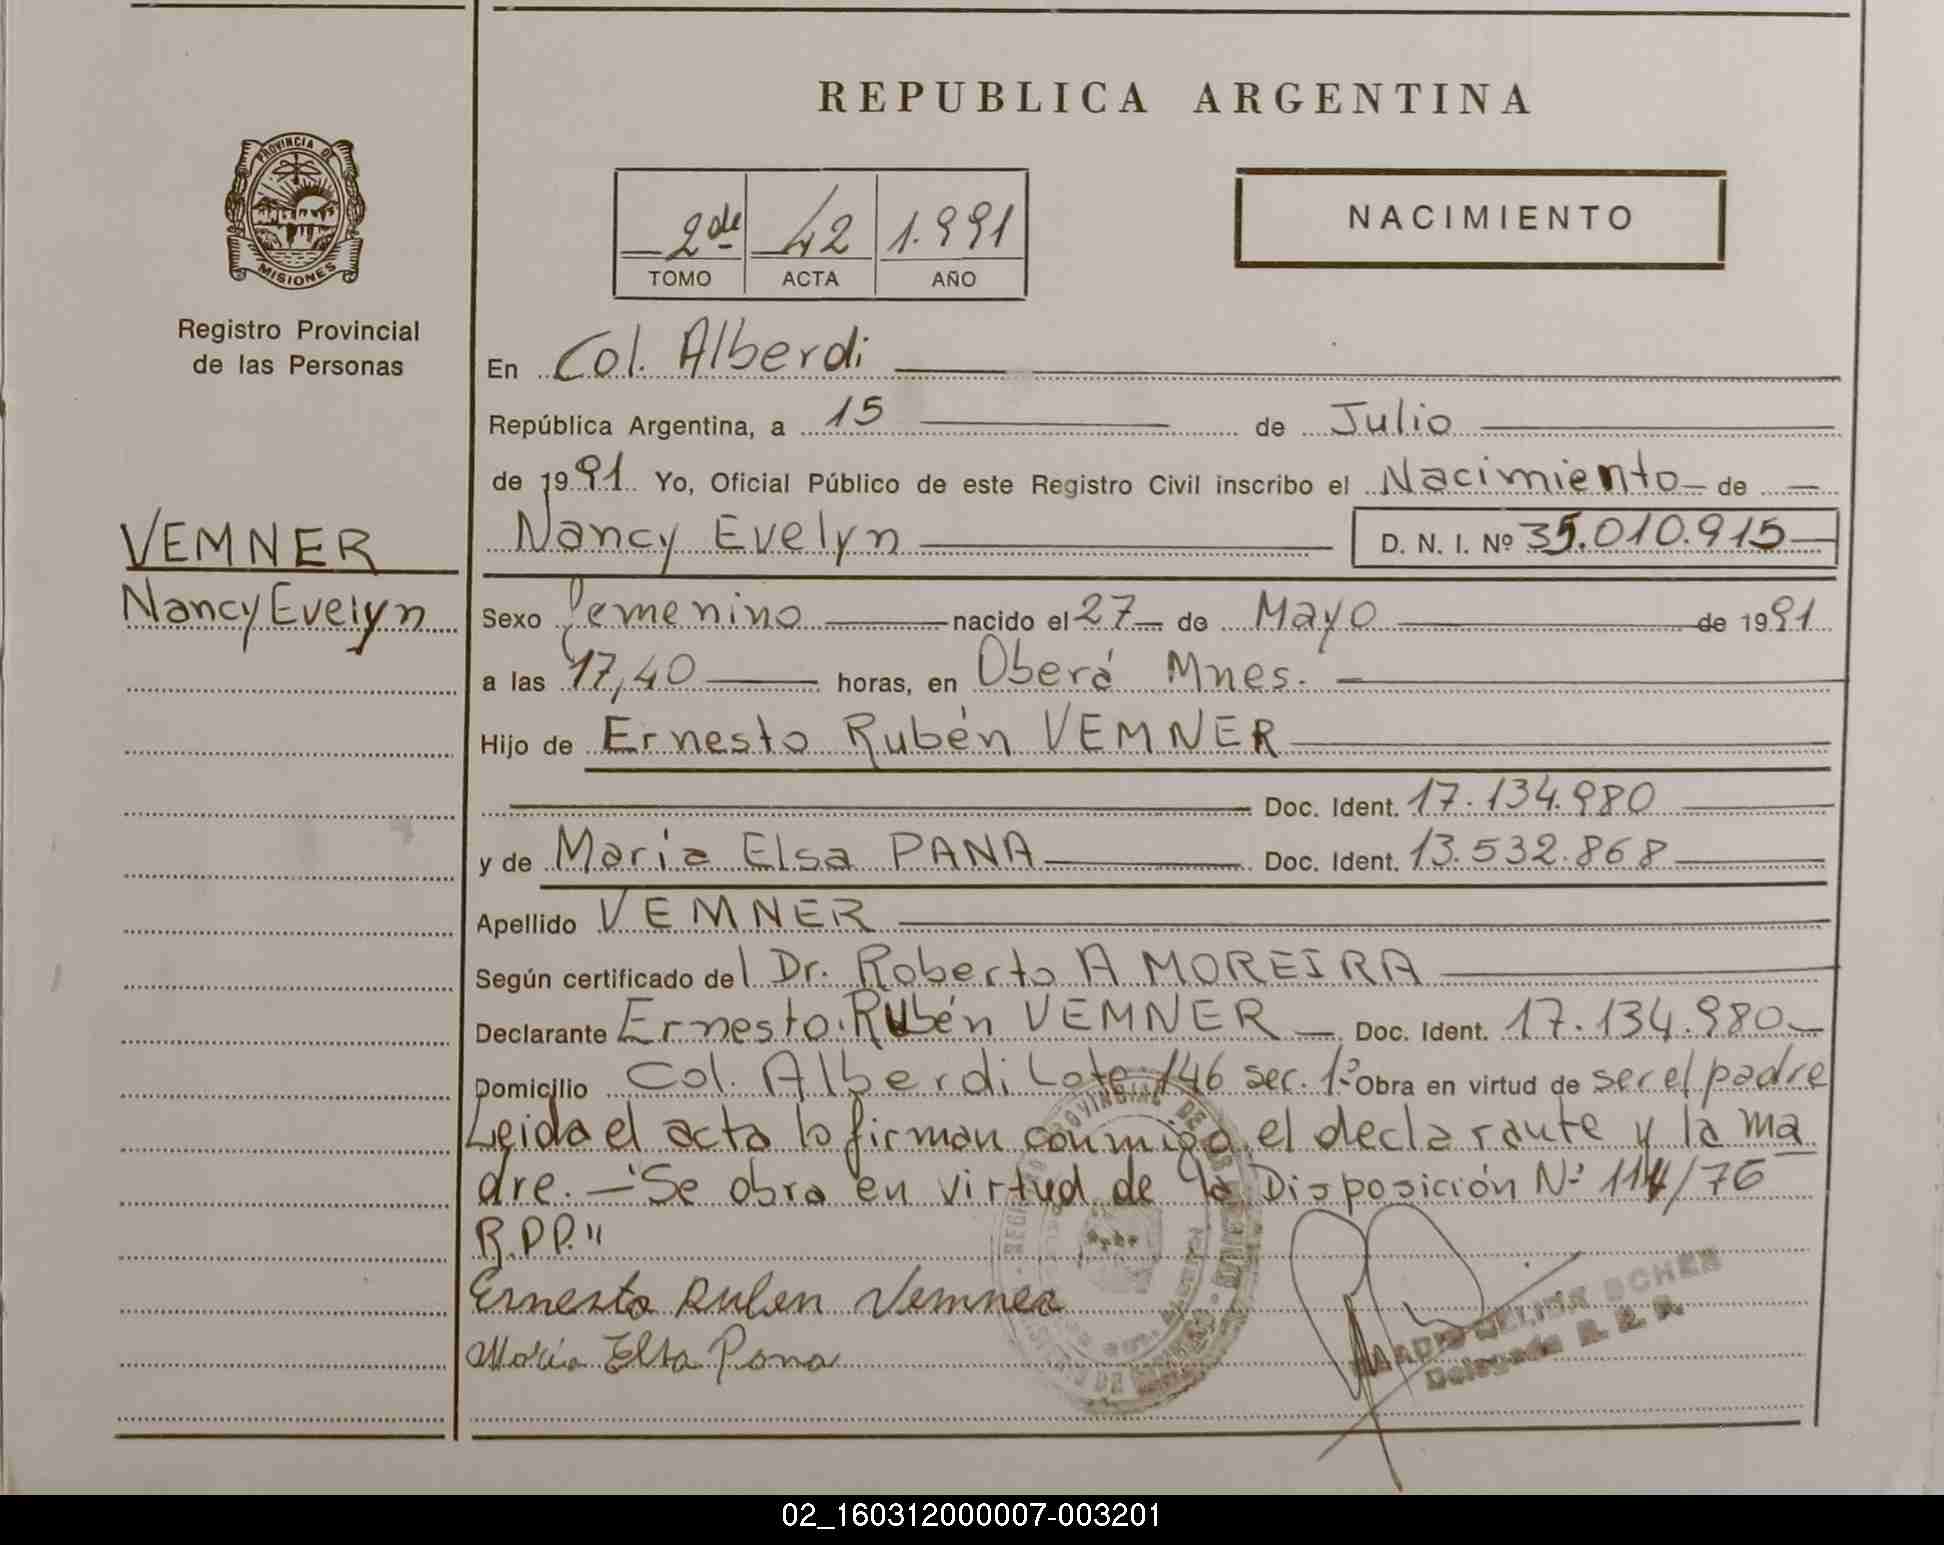 REPUBLICA ARGENTINA
PROVINCIA DE
MISIONES
Registro Provincial
de las Personas
2de 42 1.991
TOMO ACTA AÑO
NACIMIENTO
VEMNER
Nancy Evelyn
En Col. Alberdi
República Argentina, a 15 de Julio
de 1991 Yo, Oficial Público de este Registro Civil inscribo el Nacimiento de
Nancy Evelyn D. N. I. Nº 35.010.915
Sexo femenino nacido el 27 de Mayo de 1991
a las 17,40 horas, en Oberá Mnes.
Hijo de Ernesto Rubén VEMNER
Doc. Ident. 17.134.980
y de Maria Elsa PANA Doc. Ident. 13.532.868
Apellido VEMNER
Según certificado del Dr. Roberto A MOREIRA
Declarante Ernesto Rubén VEMNER Doc. Ident. 17.134.980
Domicilio Col. Alberdi Lote 146 sec. 1º Obra en virtud de ser el padre
Leida el acta lo firman conmigo el declarante y la ma
dre. — "Se obra en virtud de la Disposición Nº 114/76
R.P.P."
Ernesto Ruben Vemner
Maria Elsa Pana
Delegada R. P. P.
02_160312000007-003201